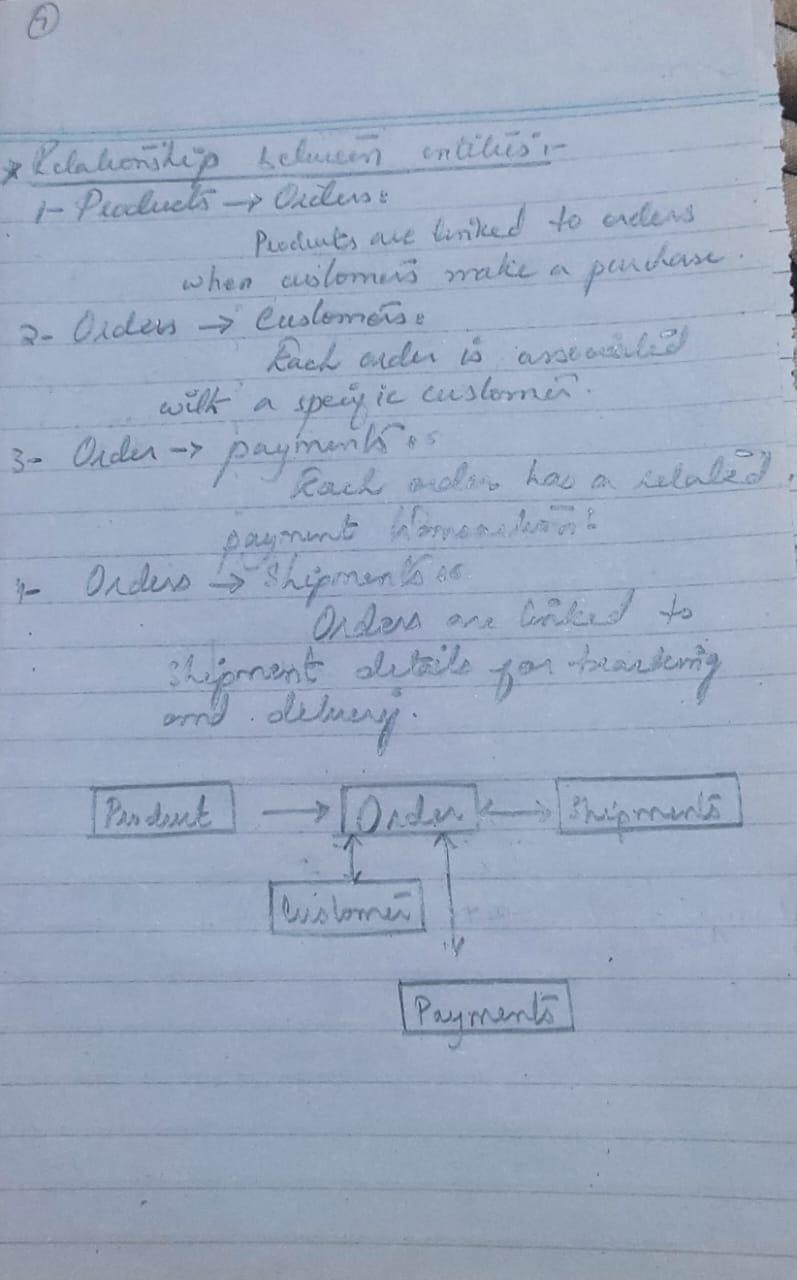 4
* Relationship between entities:-
1- Products → Orders:
Products are linked to orders
when customers make a purchase.
2- Orders → Customers:
Each order is associated
with a specific customer.
3- Order → payments:
Each order has a related
payment transaction:
4- Orders → Shipments:
Orders are linked to
Shipment details for tracking
and delivery.
Product → Order ↔ Shipments
Customer
Payments